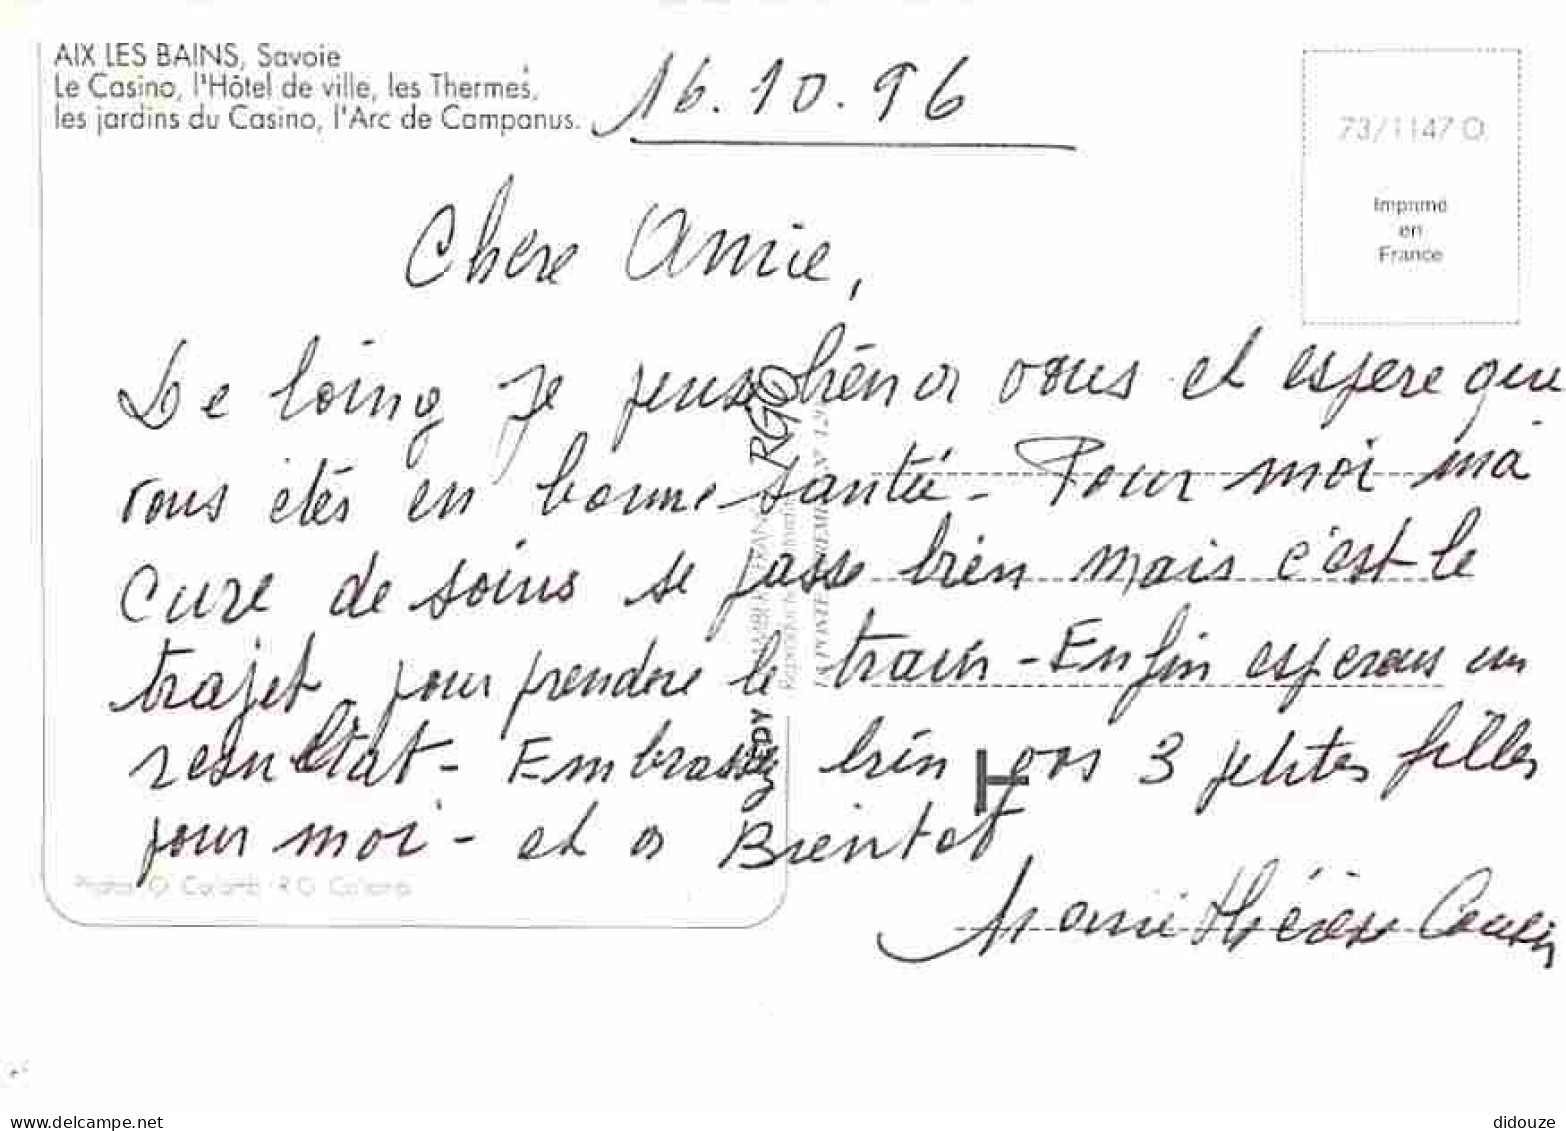 AIX LES BAINS, Savoie
Le Casino, l'Hôtel de ville, les Thermes,
les jardins du Casino, l'Arc de Campanus.
16.10.96
73/1147 O.
Imprimé
en
France
Chere Amie,
De loing Je pense bien a vous et espere que
vous étés en bonne santé - Pour moi ma
Cure de soins se passe bien mais c'est le
trajet pour prendre le train - Enfin esperons un
resultat - Embrassez bien vos 3 petites filles
pour moi - et a Bientot
Marie Thérèse
RGO
EDY
LA POSTE
www.delcampe.net
didouze